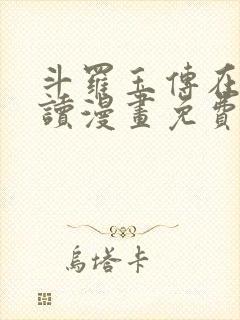 斗羅玉傳在
讀漫畫免費
烏塔卡